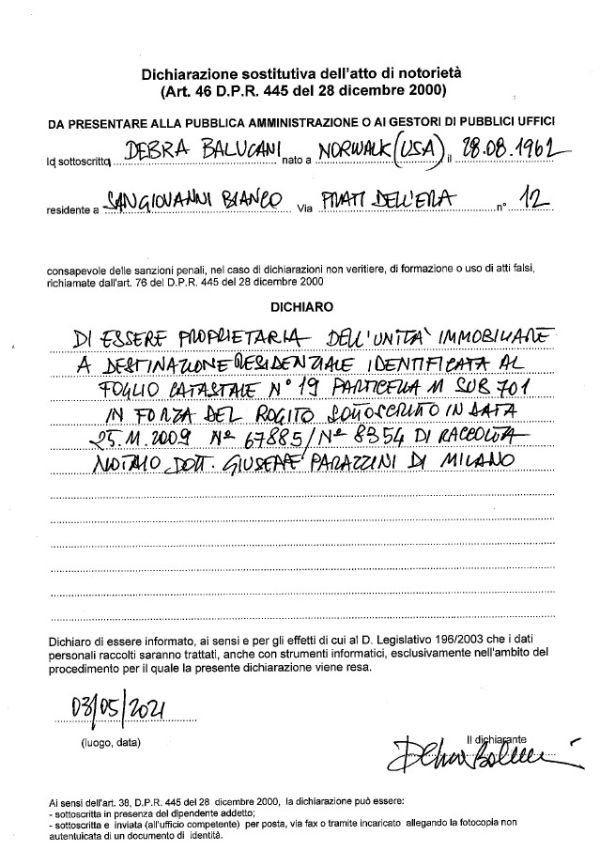 Dichiarazione sostitutiva dell'atto di notorietà
(Art. 46 D.P.R. 445 del 28 dicembre 2000)
DA PRESENTARE ALLA PUBBLICA AMMINISTRAZIONE O AI GESTORI DI PUBBLICI UFFICI
I_ sottoscritt_ DEBRA BALUCANI nato a NORWALK (USA) il 28.08.1962
residente a SAN GIOVANNI BIANCO Via PRATI DELL'ERA n° 12
consapevole delle sanzioni penali, nel caso di dichiarazioni non veritiere, di formazione o uso di atti falsi,
richiamate dall'art. 76 del D.P.R. 445 del 28 dicembre 2000
DICHIARO
DI ESSERE PROPRIETARIA DELL'UNITÀ IMMOBILIARE
A DESTINAZIONE RESIDENZIALE IDENTIFICATA AL
FOGLIO CATASTALE N° 19 PARTICELLA 11 SUB 701
IN FORZA DEL ROGITO SOTTOSCRITTO IN DATA
25.11.2009 N° 67885/N° 8354 DI RACCOLTA
NOTAIO DOTT. GIUSEPPE PARAZZINI DI MILANO
Dichiaro di essere informato, ai sensi e per gli effetti di cui al D. Legislativo 196/2003 che i dati
personali raccolti saranno trattati, anche con strumenti informatici, esclusivamente nell'ambito del
procedimento per il quale la presente dichiarazione viene resa.
03/05/2021
(luogo, data)
Il dichiarante
Ai sensi dell'art. 38, D.P.R. 445 del 28 dicembre 2000, la dichiarazione può essere:
- sottoscritta in presenza del dipendente addetto;
- sottoscritta e inviata (all'ufficio competente) per posta, via fax o tramite incaricato allegando la fotocopia non
autentuicata di un documento di identità.